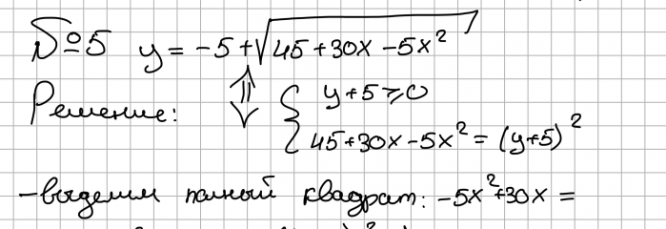 №5 y = -5 + √(45 + 30x - 5x²)
Решение: ⇕ { y + 5 ≥ 0
45 + 30x - 5x² = (y + 5)²
- выделим полный квадрат: -5x² + 30x =